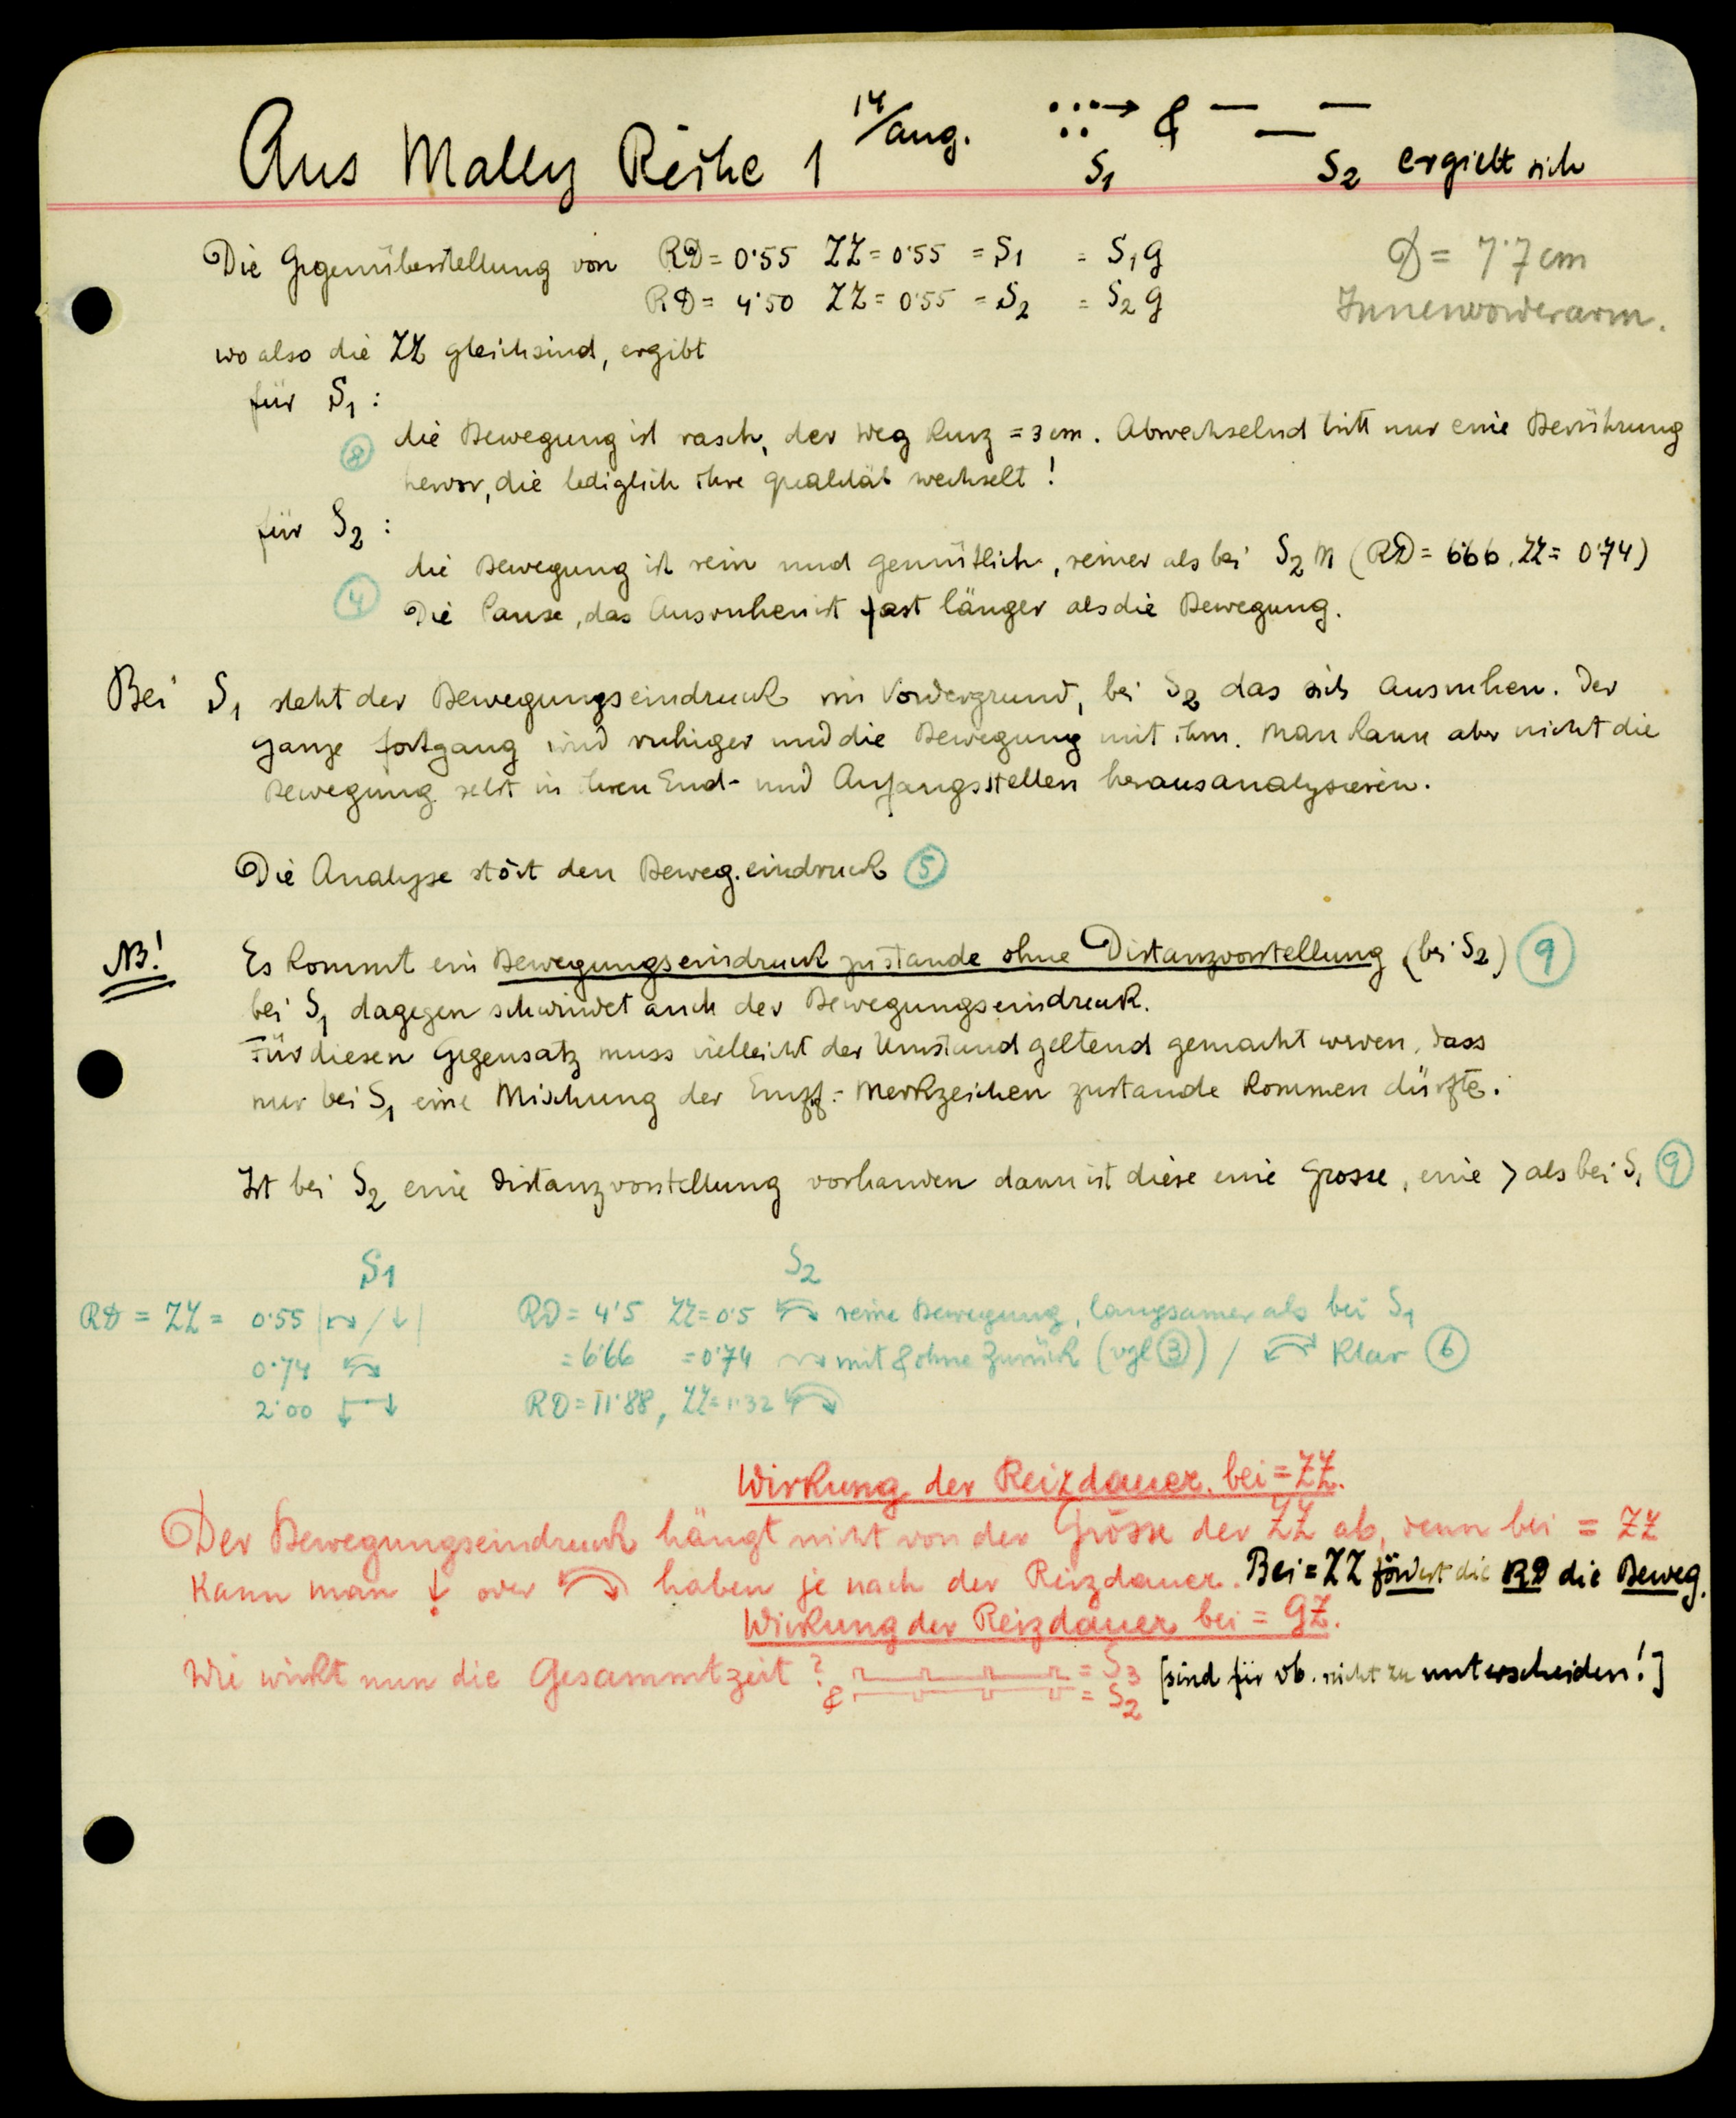 Aus Mally Reihe 1 14/Aug. S1 & S2 ergiebt sich
Die Gegenüberstellung von RD = 0'55 ZZ = 0'55 = S1 = S1 g
RD = 4'50 ZZ = 0'55 = S2 = S2 g
D = 7'7 cm
Innenvorderarm.
wo also die ZZ gleich sind, ergibt
für S1 :
⑧ die Bewegung ist rasch, der Weg kurz = 3 cm. Abwechselnd tritt nur eine Berührung
hervor, die lediglich ihre Qualität wechselt !
für S2 :
die Bewegung ist rein und gemütlich, reiner als bei S2 m (RD = 6'66, ZZ = 0'74)
④ Die Pause, das Ausruhen ist fast länger als die Bewegung.
Bei S1 steht der Bewegungseindruck im Vordergrund, bei S2 das sich Ausruhen. Der
ganze Fortgang wird ruhiger und die Bewegung mit ihm. Man kann aber nicht die
Bewegung selbst in ihren End- und Anfangsstellen herausanalysieren.
Die Analyse stört den Beweg.eindruck ⑤
NB! Es kommt ein Bewegungseindruck zustande ohne Distanzvorstellung (bei S2) ⑨
bei S1 dagegen schwindet auch der Bewegungseindruck.
Für diesen Gegensatz muss vielleicht der Umstand geltend gemacht werden, dass
nur bei S1 eine Mischung der Empf.-Merkzeichen zustande kommen dürfte.
Ist bei S2 eine Distanzvorstellung vorhanden dann ist diese eine Grosse, eine > als bei S1 ⑨
S1 S2
RD = ZZ = 0'55 | / ↓ | RD = 4'5 ZZ = 0'5 reine Bewegung, langsamer als bei S1
0'74 = 6'66 = 0'74 mit & ohne Zurück (vgl ③) / klar ⑥
2'00 RD = 11'88, ZZ = 1'32
Wirkung der Reizdauer bei = ZZ.
Der Bewegungseindruck hängt nicht von der Grösse der ZZ ab, denn bei = ZZ
kann man ↓ oder haben je nach der Reizdauer. Bei = ZZ fördert die RD die Beweg.
Wirkung der Reizdauer bei = GZ.
Wie wirkt nun die Gesammtzeit ? = S3 [sind für Vb. nicht zu unterscheiden!]
& = S2